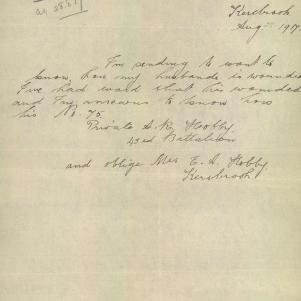 Kersbrook
Aug 1917
I'm sending to want to
know, how my husbands is wounded
I've had world that his wounded
and I'm anxious to know how
his No. 75
Private A. R. Hobby
43rd Battalion
and oblige Mrs E. A. Hobby
Kersbrook